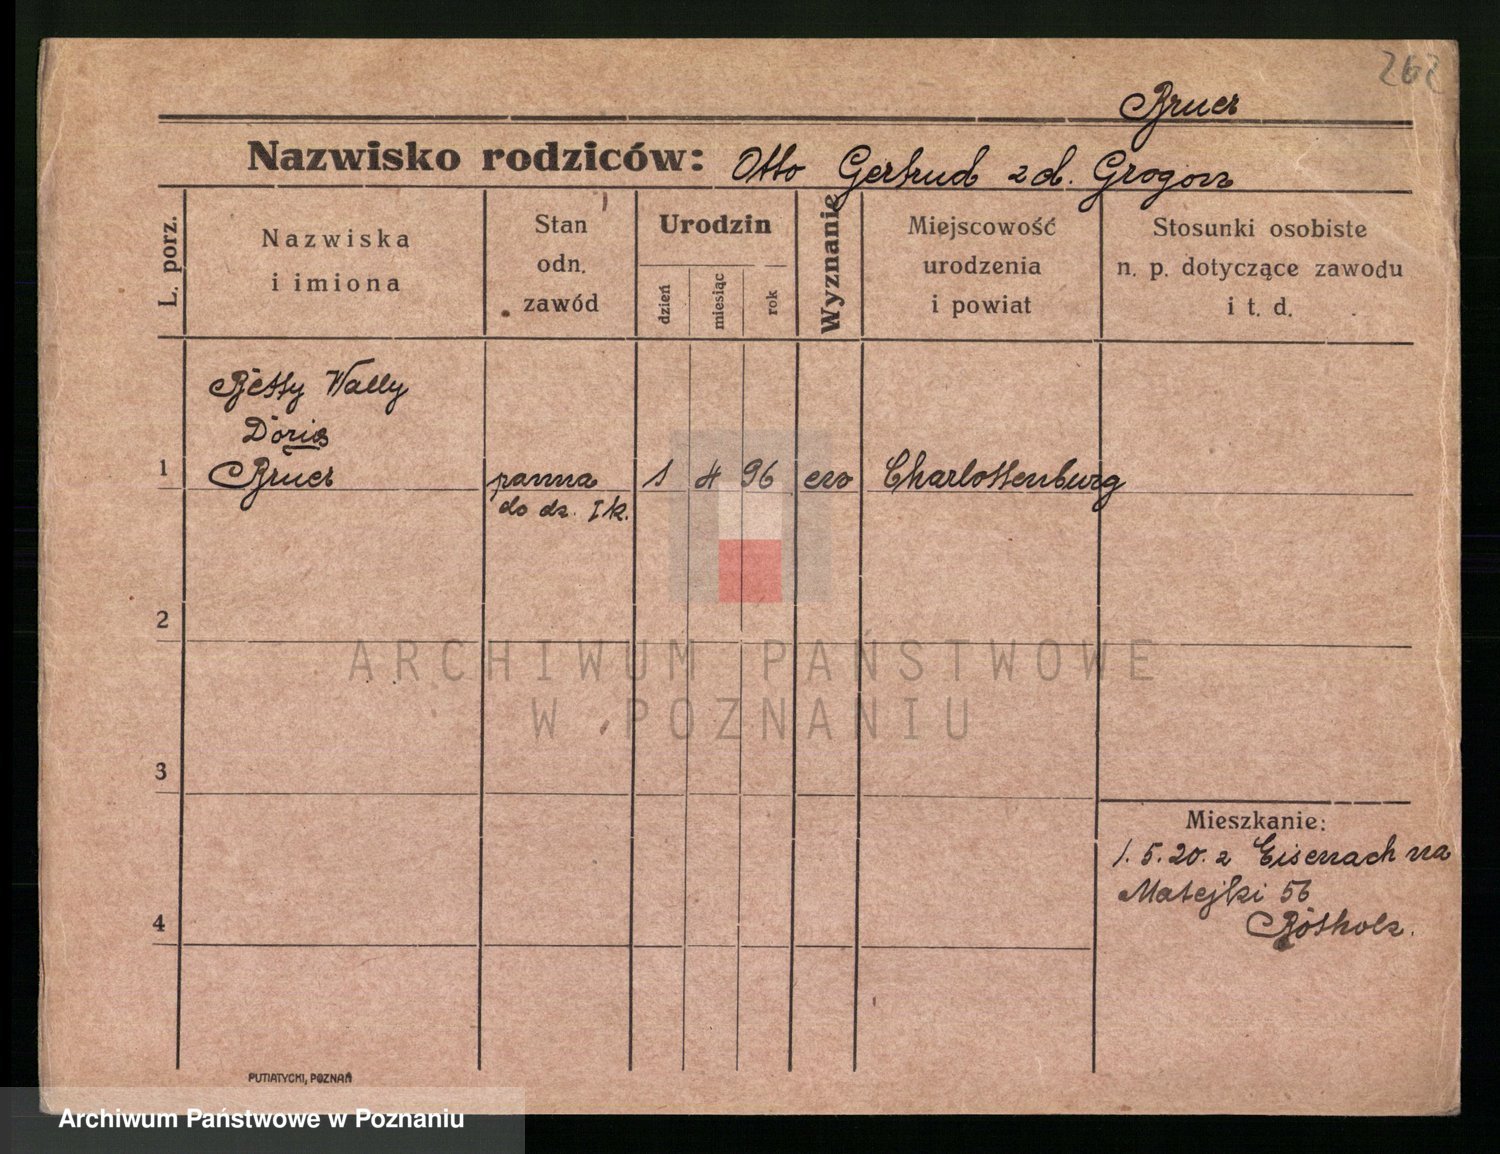 262
Bruer
Nazwisko rodziców: Otto Gertrud zd. Grogorz
L. porz.
Nazwiska
i imiona
Stan
odn.
zawód
Urodzin
dzień
miesiąc
rok
Wyznanie
Miejscowość
urodzenia
i powiat
Stosunki osobiste
n. p. dotyczące zawodu
i t. d.
Betty Wally
Doris
1 Bruer panna 1 4 96 ew Charlottenburg
do dz. I k.
2
ARCHIWUM PAŃSTWOWE
W POZNANIU
3
Mieszkanie:
1. 5. 20. z Eisenach na
Matejki 56
4
PUTIATYCKI, POZNAŃ
Archiwum Państwowe w Poznaniu